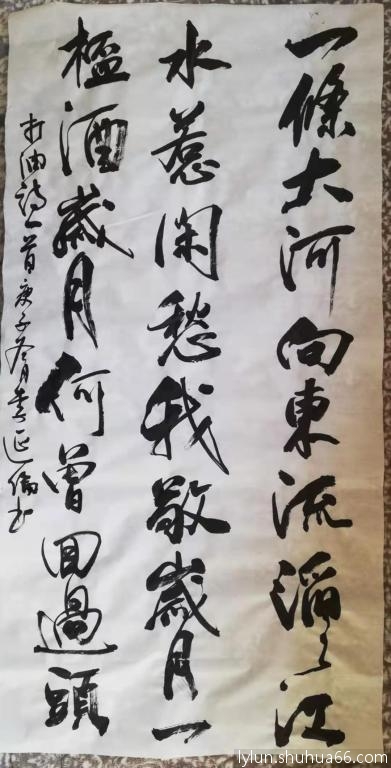 一條大河向東流滔々江
水惹閑愁我敬歲月一
酒歲月何曾回過頭
打油詩一首庚子冬月李延倫书
lylun.shuhua66.com